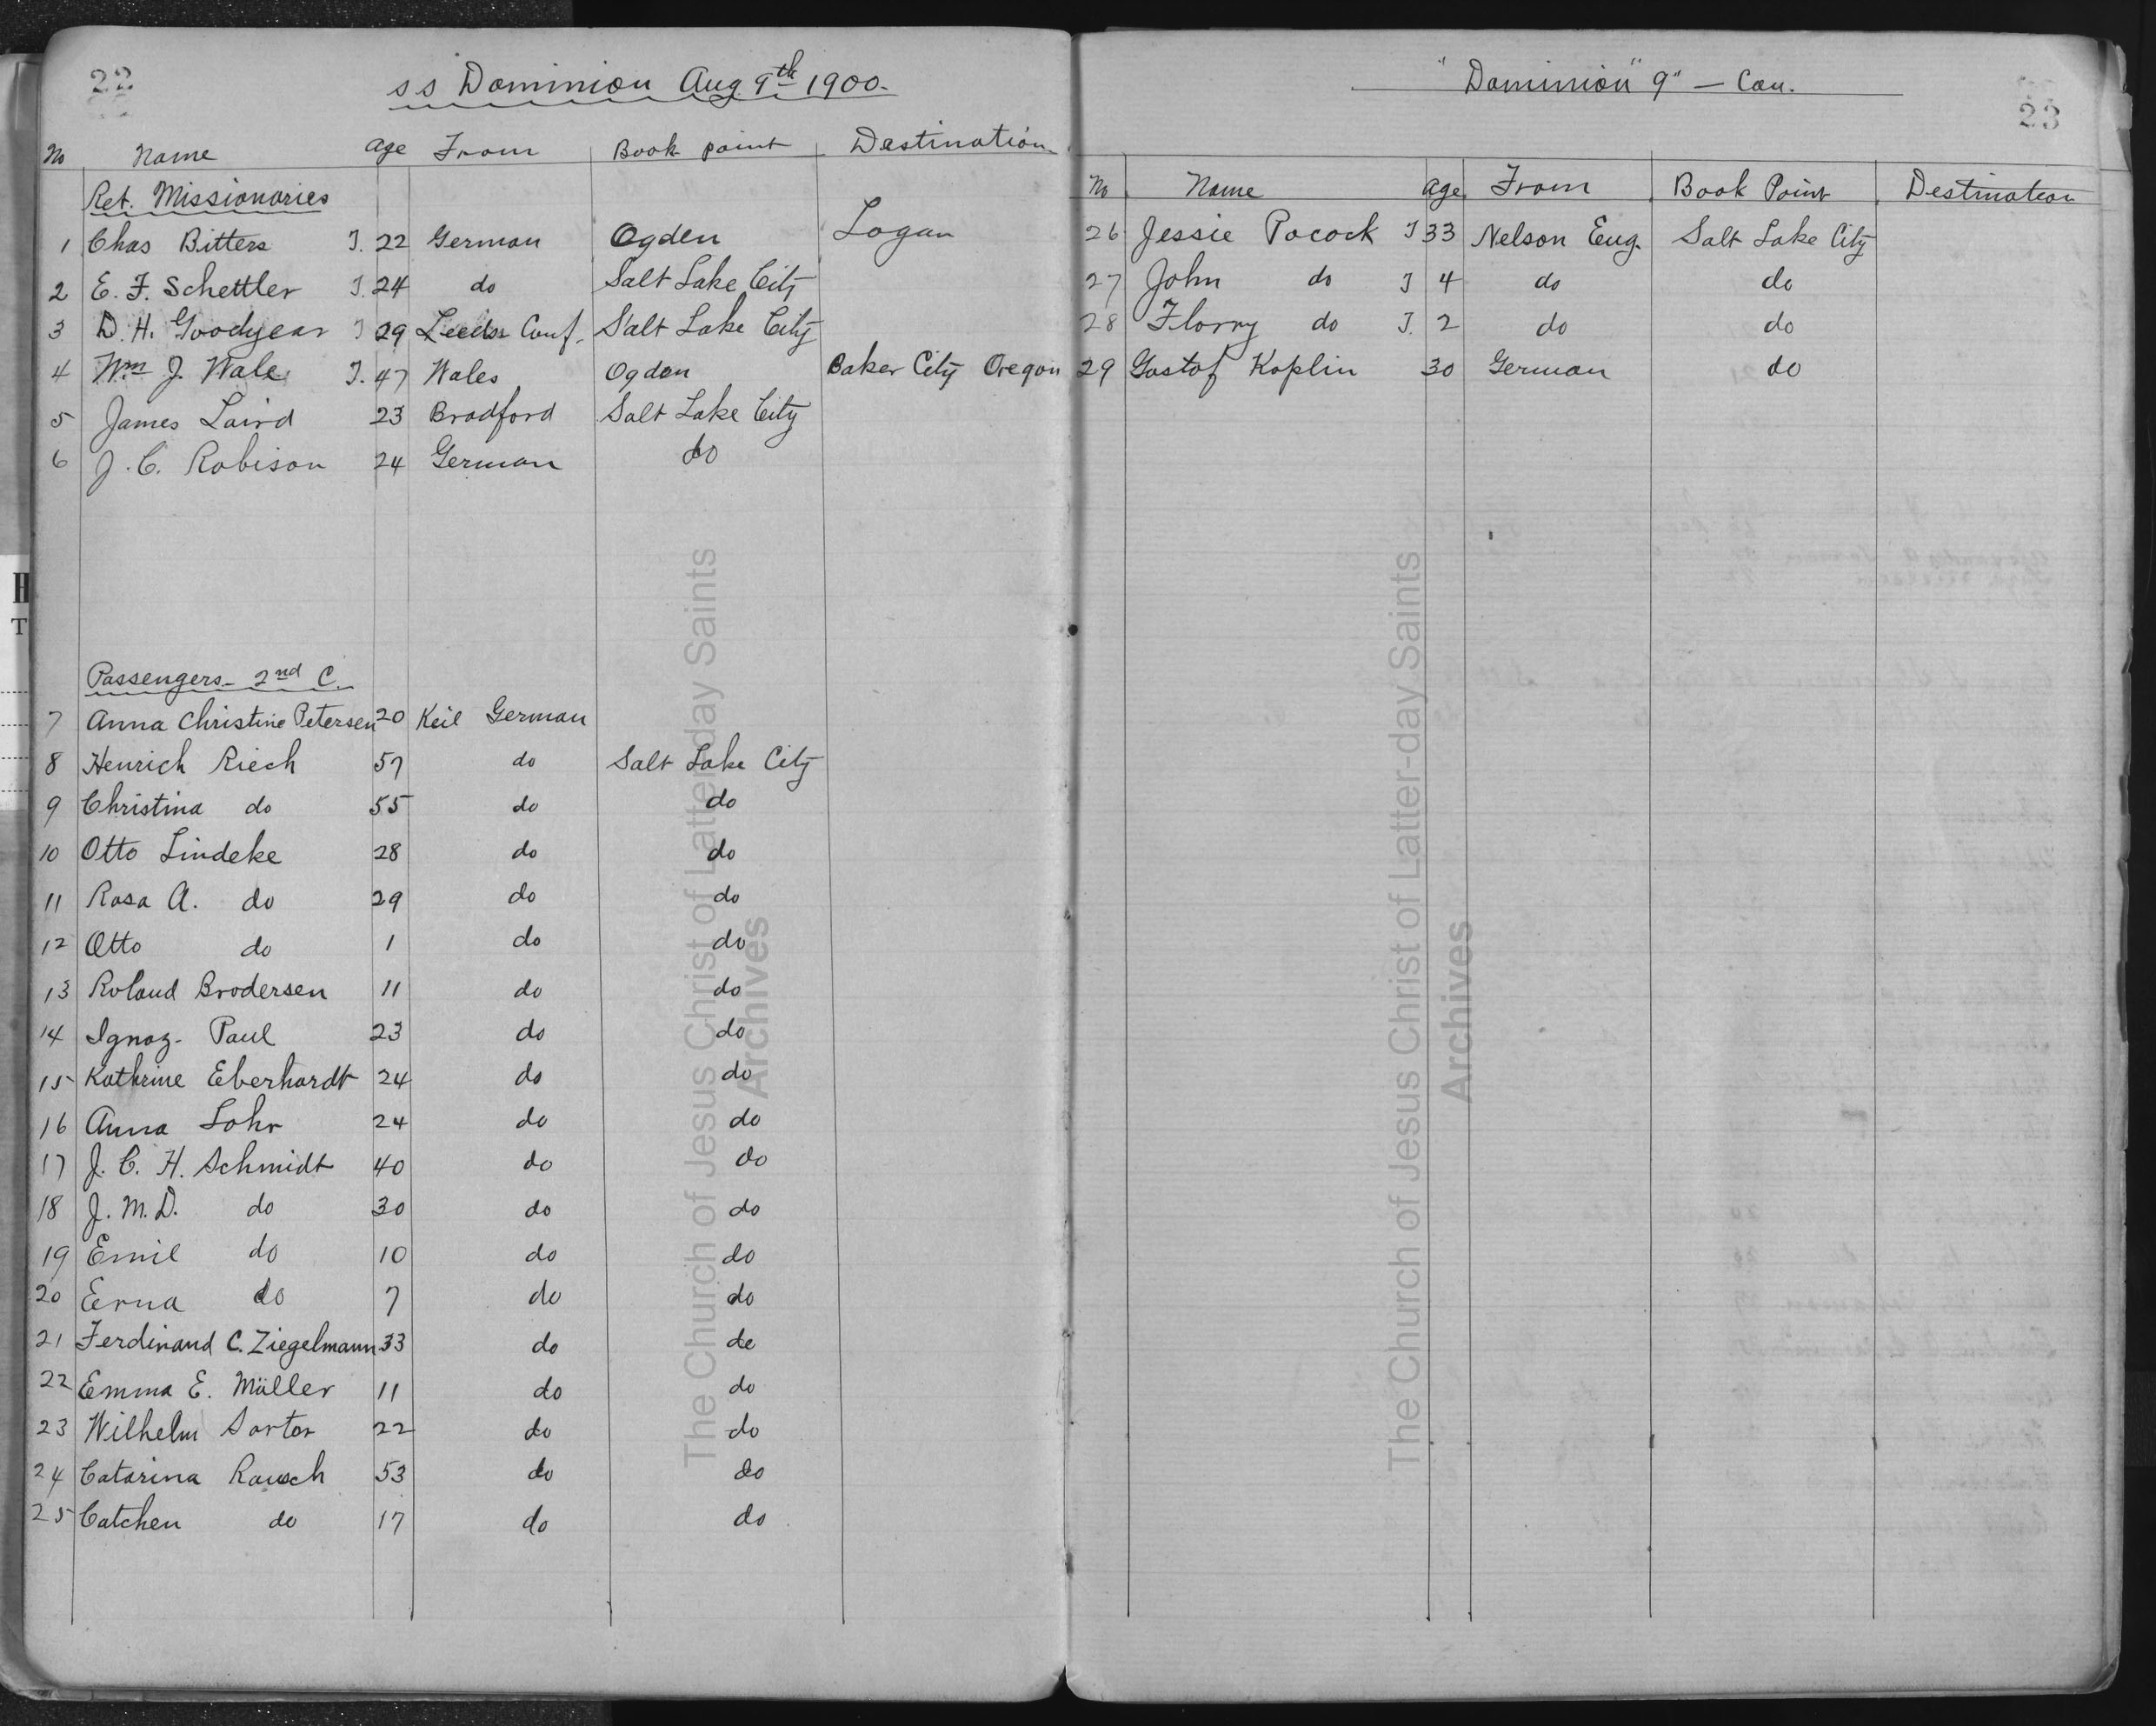 22
s s Dominion Aug. 9th 1900.
No Name age From Book point Destination
Ret. Missionaries
1 Chas Bitters J. 22 German Ogden Logan
2 E. F. Schettler J. 24 do Salt Lake City
3 D. H. Goodyear J 29 Leeds Conf. Salt Lake City
4 Wm J. Wale J. 47 Wales Ogden Baker City Oregon
5 James Laird 23 Bradford Salt Lake City
6 J. C. Robison 24 German do
Passengers - 2nd C.
7 Anna Christine Petersen 20 Keil German
8 Henrich Riech 57 do Salt Lake City
9 Christina do 55 do do
10 Otto Lindeke 28 do do
11 Rosa A. do 29 do do
12 Otto do 1 do do
13 Roland Brodersen 11 do do
14 Ignaz Paul 23 do do
15 Kathrine Eberhardt 24 do do
16 Anna Lohr 24 do do
17 J. C. H. Schmidt 40 do do
18 J. M. D. do 30 do do
19 Emil do 10 do do
20 Erna do 7 do do
21 Ferdinand C. Ziegelmann 33 do de
22 Emma E. Müller 11 do do
23 Wilhelm Sartor 22 do do
24 Catarina Rausch 53 do do
25 Catchen do 17 do do
The Church of Jesus Christ of Latter-day Saints
Archives
"Dominion" 9" — Con.
23
No Name age From Book Point Destination
26 Jessie Pocock J 33 Nelson Eng. Salt Lake City
27 John do J 4 do do
28 Florry do J. 2 do do
29 Gustof Koplin 30 German do
The Church of Jesus Christ of Latter-day Saints
Archives